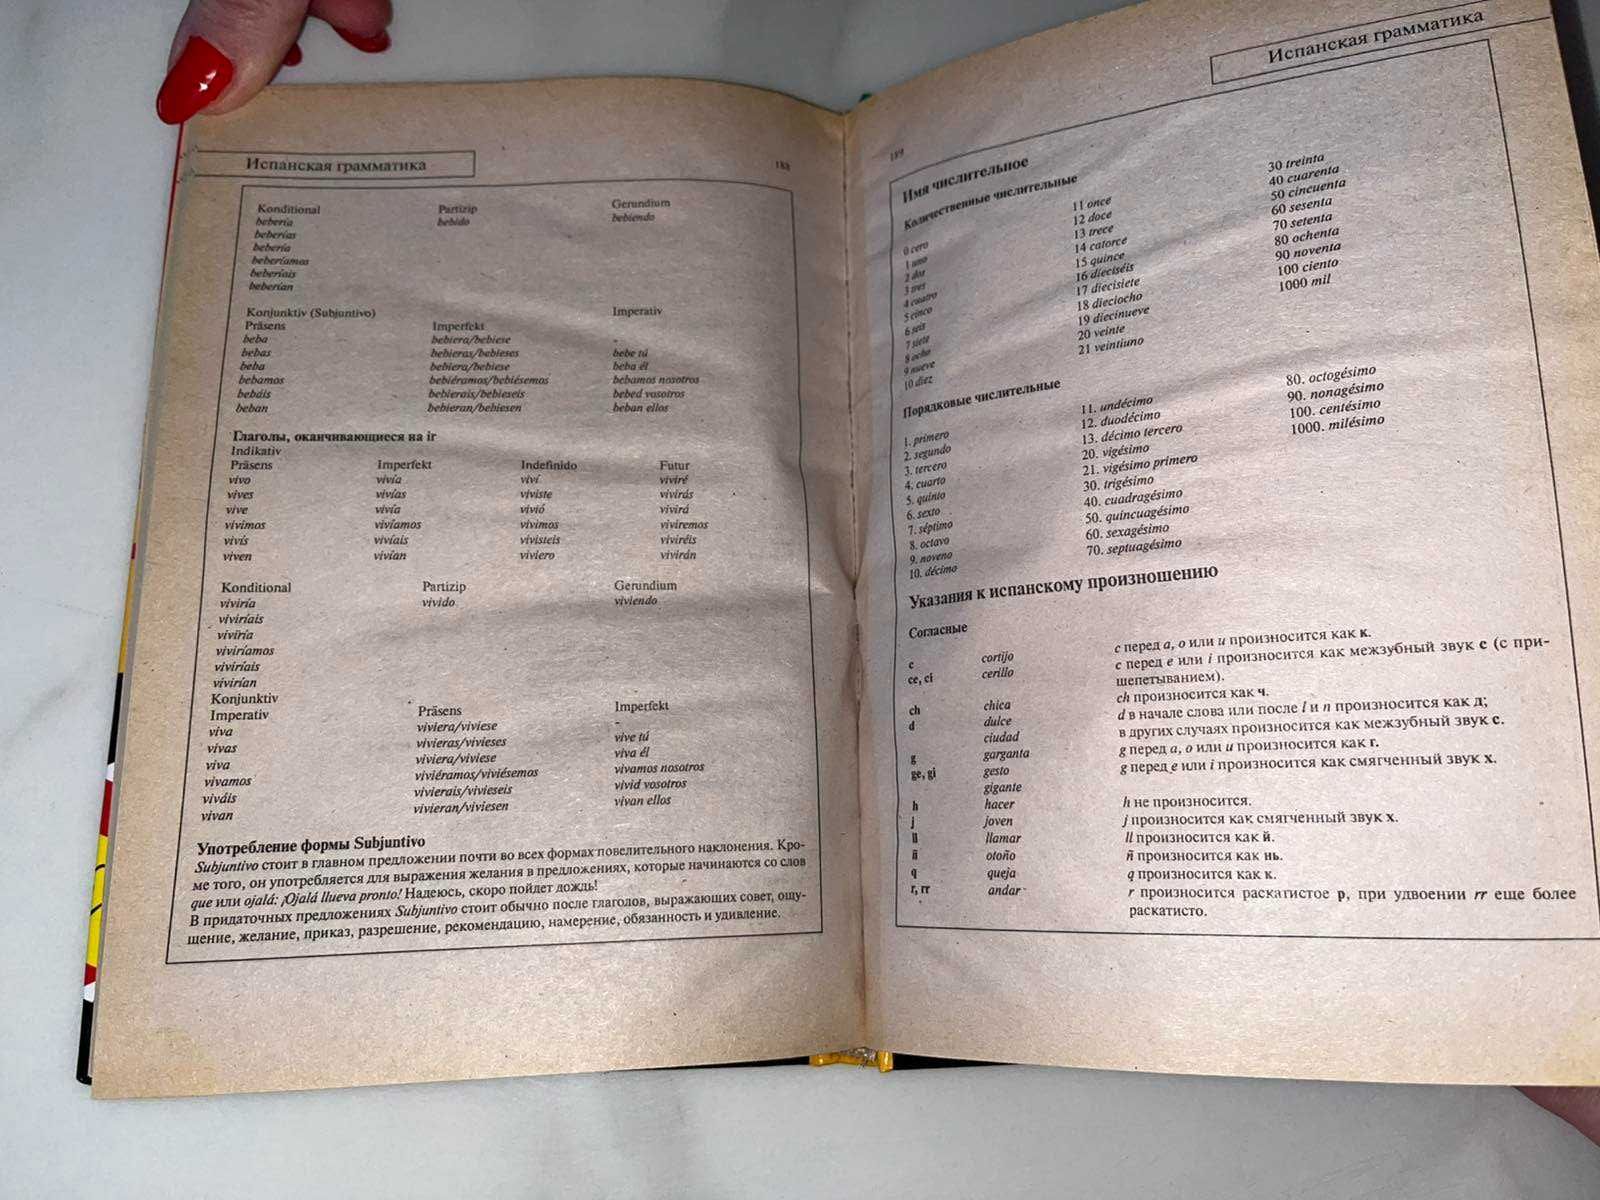 Испанская грамматика 188
Konditional Partizip Gerundium
bebería bebido bebiendo
beberías
bebería
beberíamos
beberíais
beberían
Konjunktiv (Subjuntivo) Imperativ
Präsens Imperfekt
beba bebiera/bebiese -
bebas bebieras/bebieses bebe tú
beba bebiera/bebiese beba él
bebamos bebiéramos/bebiésemos bebamos nosotros
bebáis bebierais/bebieseis bebed vosotros
beban bebieran/bebiesen beban ellos
Глаголы, оканчивающиеся на ir
Indikativ
Präsens Imperfekt Indefinido Futur
vivo vivía viví viviré
vives vivías viviste vivirás
vive vivía vivió vivirá
vivimos vivíamos vivimos viviremos
vivís vivíais vivisteis viviréis
viven vivían viviero vivirán
Konditional Partizip Gerundium
viviría vivido viviendo
viviríais
viviría
viviríamos
viviríais
vivirían
Konjunktiv
Imperativ Präsens Imperfekt
viva viviera/viviese -
vivas vivieras/vivieses vive tú
viva viviera/viviese viva él
vivamos viviéramos/viviésemos vivamos nosotros
viváis vivierais/vivieseis vivid vosotros
vivan vivieran/viviesen vivan ellos
Употребление формы Subjuntivo
Subjuntivo стоит в главном предложении почти во всех формах повелительного наклонения. Кро-
ме того, он употребляется для выражения желания в предложениях, которые начинаются со слов
que или ojalá: ¡Ojalá llueva pronto! Надеюсь, скоро пойдет дождь!
В придаточных предложениях Subjuntivo стоит обычно после глаголов, выражающих совет, ощу-
щение, желание, приказ, разрешение, рекомендацию, намерение, обязанность и удивление.
189 Испанская грамматика
Имя числительное
Количественные числительные
0 cero
1 uno
2 dos
3 tres
4 cuatro
5 cinco
6 seis
7 siete
8 ocho
9 nueve
10 diez
11 once
12 doce
13 trece
14 catorce
15 quince
16 dieciséis
17 diecisiete
18 dieciocho
19 diecinueve
20 veinte
21 veintiuno
30 treinta
40 cuarenta
50 cincuenta
60 sesenta
70 setenta
80 ochenta
90 noventa
100 ciento
1000 mil
Порядковые числительные
1. primero
2. segundo
3. tercero
4. cuarto
5. quinto
6. sexto
7. séptimo
8. octavo
9. noveno
10. décimo
11. undécimo
12. duodécimo
13. décimo tercero
20. vigésimo
21. vigésimo primero
30. trigésimo
40. cuadragésimo
50. quincuagésimo
60. sexagésimo
70. septuagésimo
80. octogésimo
90. nonagésimo
100. centésimo
1000. milésimo
Указания к испанскому произношению
Согласные
c cortijo с перед a, o или u произносится как к.
ce, ci cerillo с перед e или i произносится как межзубный звук с (с при-
шепетыванием).
ch chica ch произносится как ч.
d dulce d в начале слова или после l и n произносится как д;
ciudad в других случаях произносится как межзубный звук с.
g garganta g перед a, o или u произносится как г.
ge, gi gesto g перед e или i произносится как смягченный звук х.
gigante
h hacer h не произносится.
j joven j произносится как смягченный звук х.
ll llamar ll произносится как й.
ñ otoño ñ произносится как нь.
q queja q произносится как к.
r, rr andar r произносится раскатистое р, при удвоении rr еще более
раскатисто.